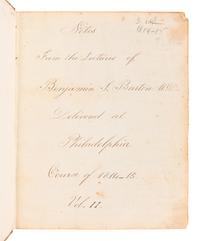 Notes
From the Lectures of
Benjamin S. Barton M.D.
Delivered at
Philadelphia
Course of 1814-15
Vol. II.
1814-15